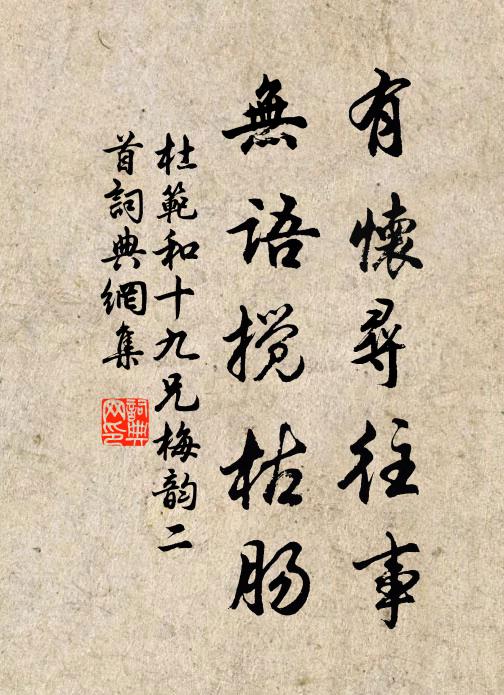 有懷尋往事
無語攬枯肠
杜範和十九兄梅韵二
首詞典網集
詞典
网印